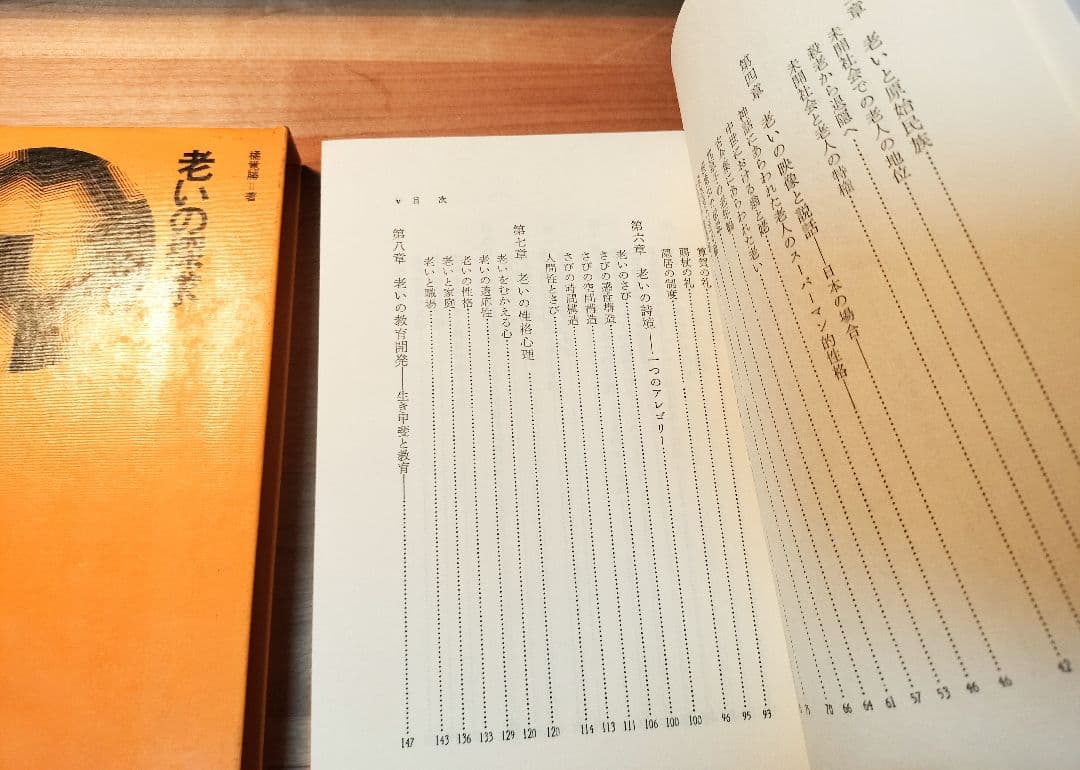 橘覚勝＝著
老いの探求
章　老いと原始民族 42
未開社会での老人の地位 46
殺老から退隠へ 46
未開社会と老人の特権 53
第四章　老いの映像と説話──日本の場合── 57
神話にあらわれた老人のスーパーマン的性格 61
中世における翁と媼 64
v 目次
算賀の礼 93
賜杖の礼 95
隠居の制度 96
第六章　老いの詩境──一つのアレゴリー 100
老いのさび 100
さびの感性構造 106
さびの空間構造 111
さびの時間構造 113
人間性とさび 114
第七章　老いの性格心理 120
老いをむかえる心 120
老いの適応性 129
老いの性格 133
老いと家庭 136
老いと職場 143
第八章　老いの教育開発──生き甲斐と教育── 147